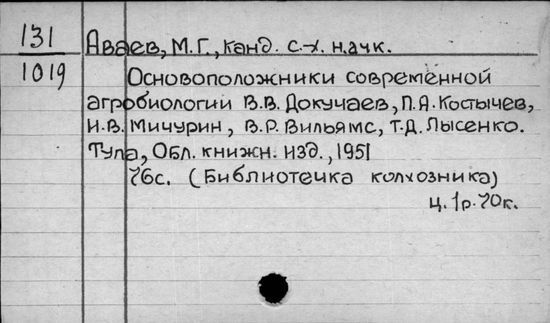 131
1019
Аваев, М.Г., канд. с.-х. начк.
Основоположники современной
агробиологии В.В. Докучаев, П.А. Костычев,
И.В. Мичурин, В.Р. Вильямс, Т.Д. Лысенко.
Тула, Обл. книжн. изд., 1951
76с. (Библиотечка колхозника)
ц. 1р. 70к.